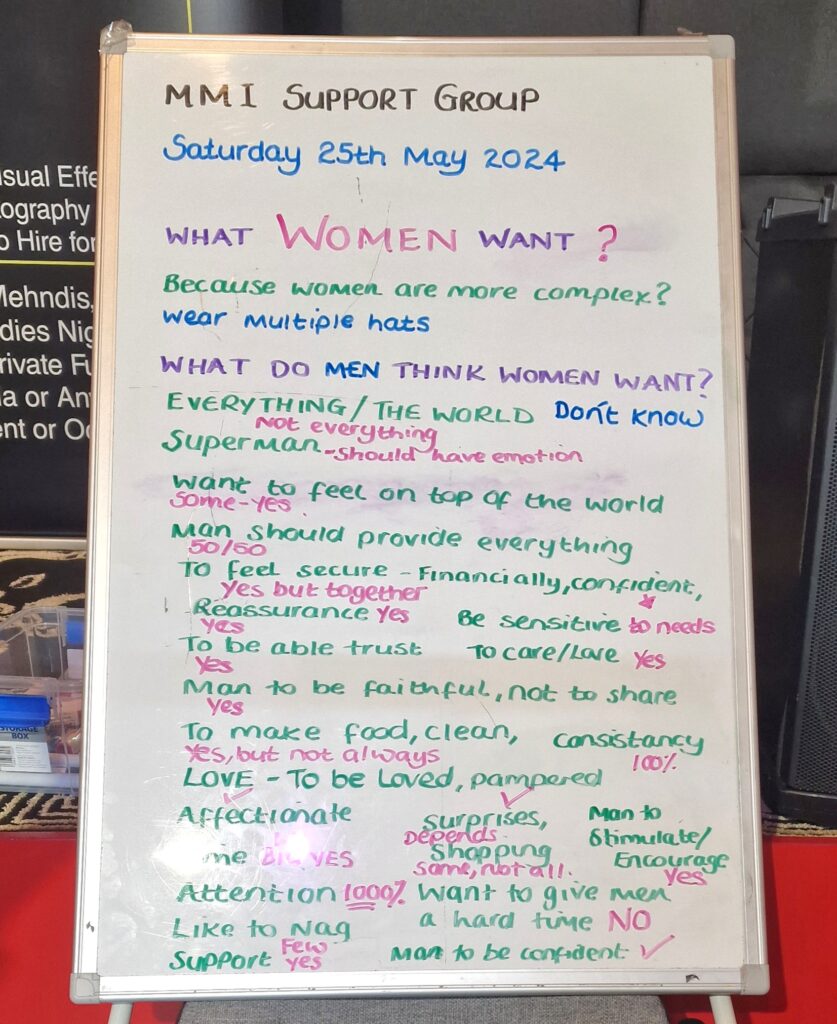 MMI SUPPORT GROUP
Saturday 25th May 2024
WHAT WOMEN WANT?
Because women are more complex?
wear multiple hats
WHAT DO MEN THINK WOMEN WANT?
EVERYTHING/THE WORLD Don't know
Not everything
Superman - should have emotion
Want to feel on top of the world
Some - yes
Man should provide everything
50/50
To feel secure - Financially, confident,
Yes but together
Reassurance Yes Be sensitive to needs
Yes
To be able trust To care/Love Yes
Yes
Man to be faithful, not to share
Yes
To make food, clean, consistancy
Yes, but not always 100%
LOVE - To be Loved, pampered
Affectionate surprises, Man to
Depends Stimulate/
me YES Shopping Encourage
Some, not all. Yes
Attention 1000% Want to give men
Like to Nag a hard time NO
Few
Support yes Man to be confident
sual Effe
ography
o Hire for
Mehndis,
dies Nig
rivate Fu
a or An
ent or Oc
STORAGE
BOX